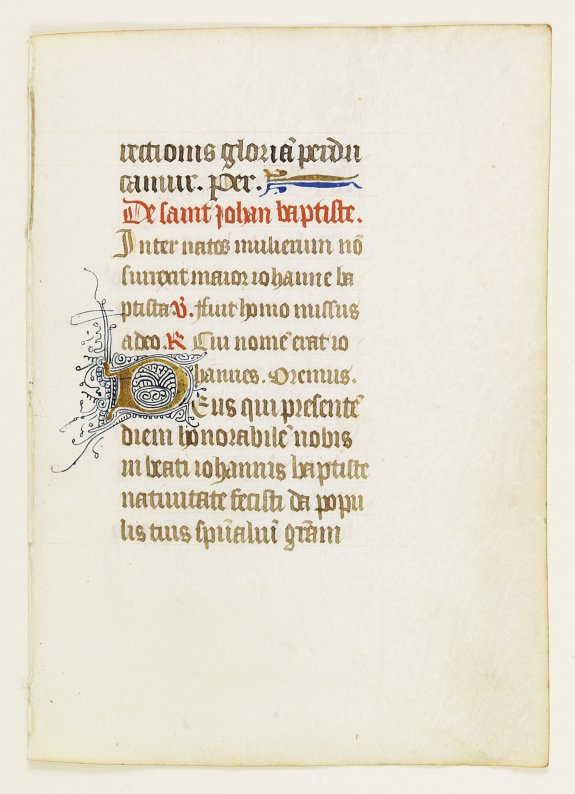 rectionis gloria᷑ perdu
camur. Per.
De saint johan baptiste.
Inter natos mulierum nō
surrexit maior iohanne ba
ptista V̄. ffuit homo missus
a deo. R Cui nomē erat io
hannes. Oremus.
Deus qui presentē
diem honorabilē nobis
in beati iohannis baptiste
natiuitate fecisti da popu
lis tuis sp̄ualiū grām